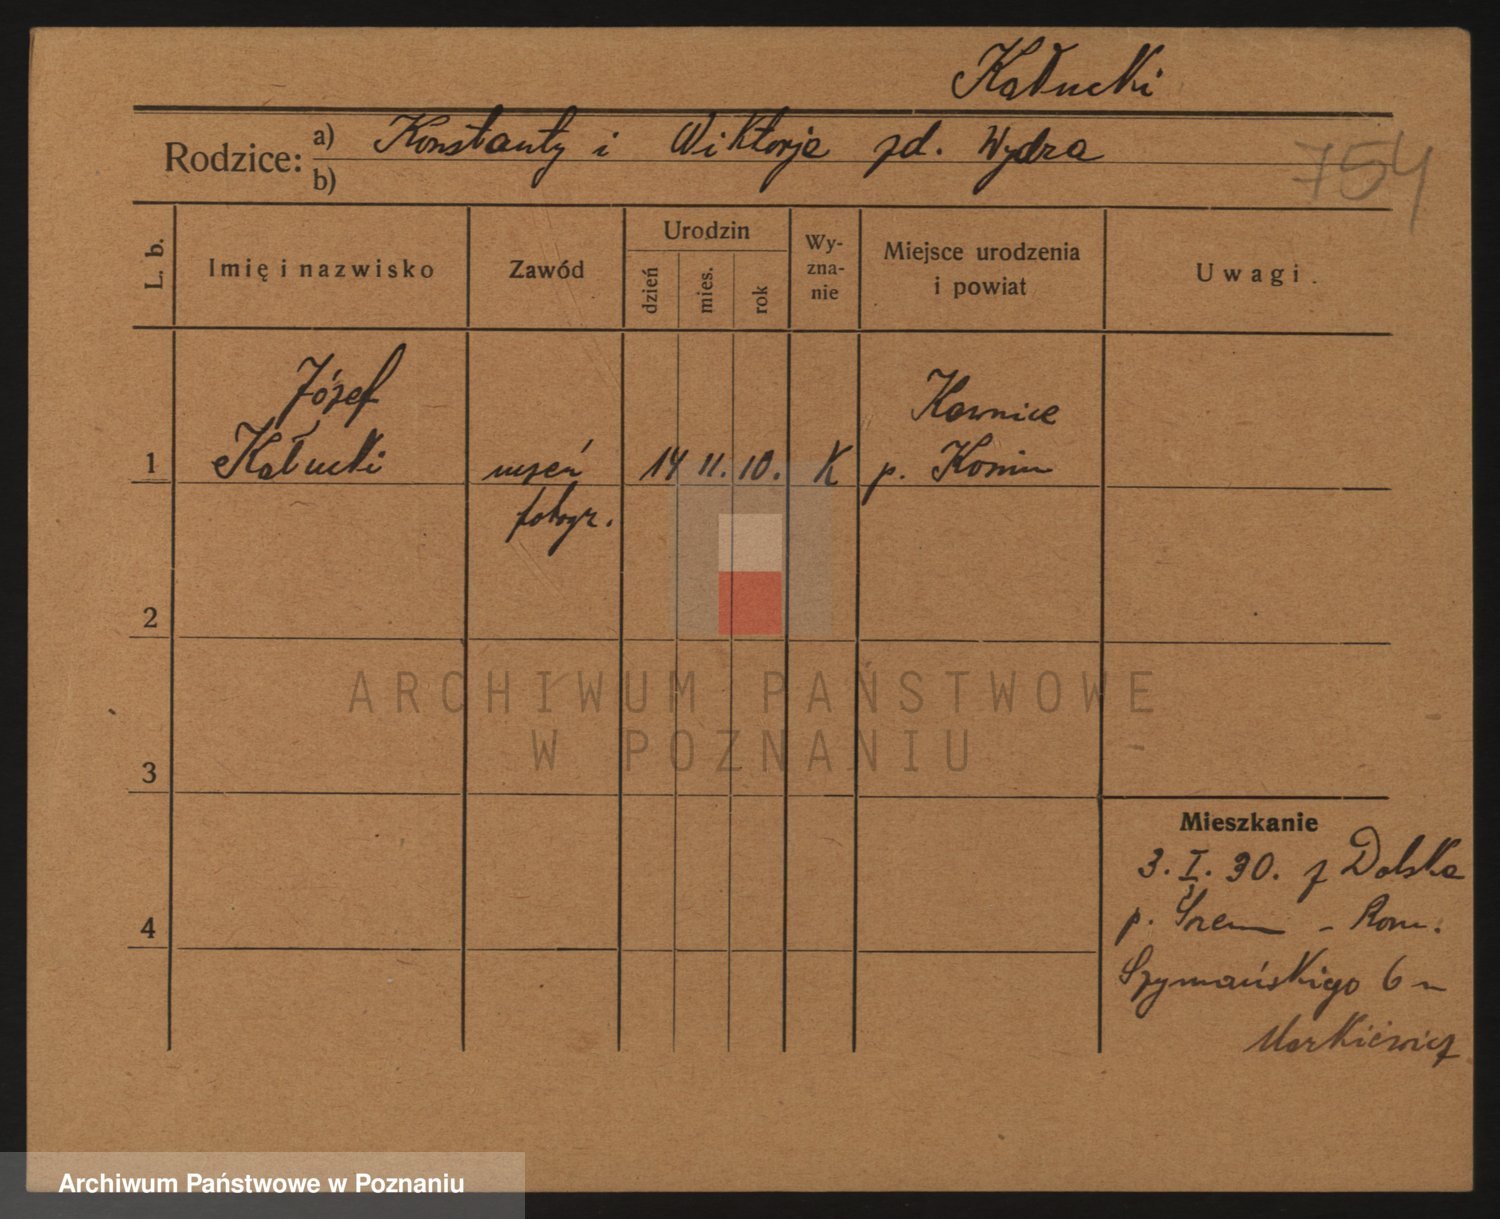 Kałucki
Rodzice: a) Konstanty i Wiktorja zd. Wydra
b)
754
L. b.
Imię i nazwisko
Zawód
Urodzin
dzień
mies.
rok
Wy-
zna-
nie
Miejsce urodzenia
i powiat
Uwagi.
Józef
Kawnice
1 Kałucki uczeń 14 11. 10. K p. Konin
fotogr.
2
ARCHIWUM PAŃSTWOWE
W POZNANIU
3
Mieszkanie
3. I. 30. z Dolska
p. Śrem - Rom.
4
Szymańskiego 6 u
Markiewicz
Archiwum Państwowe w Poznaniu